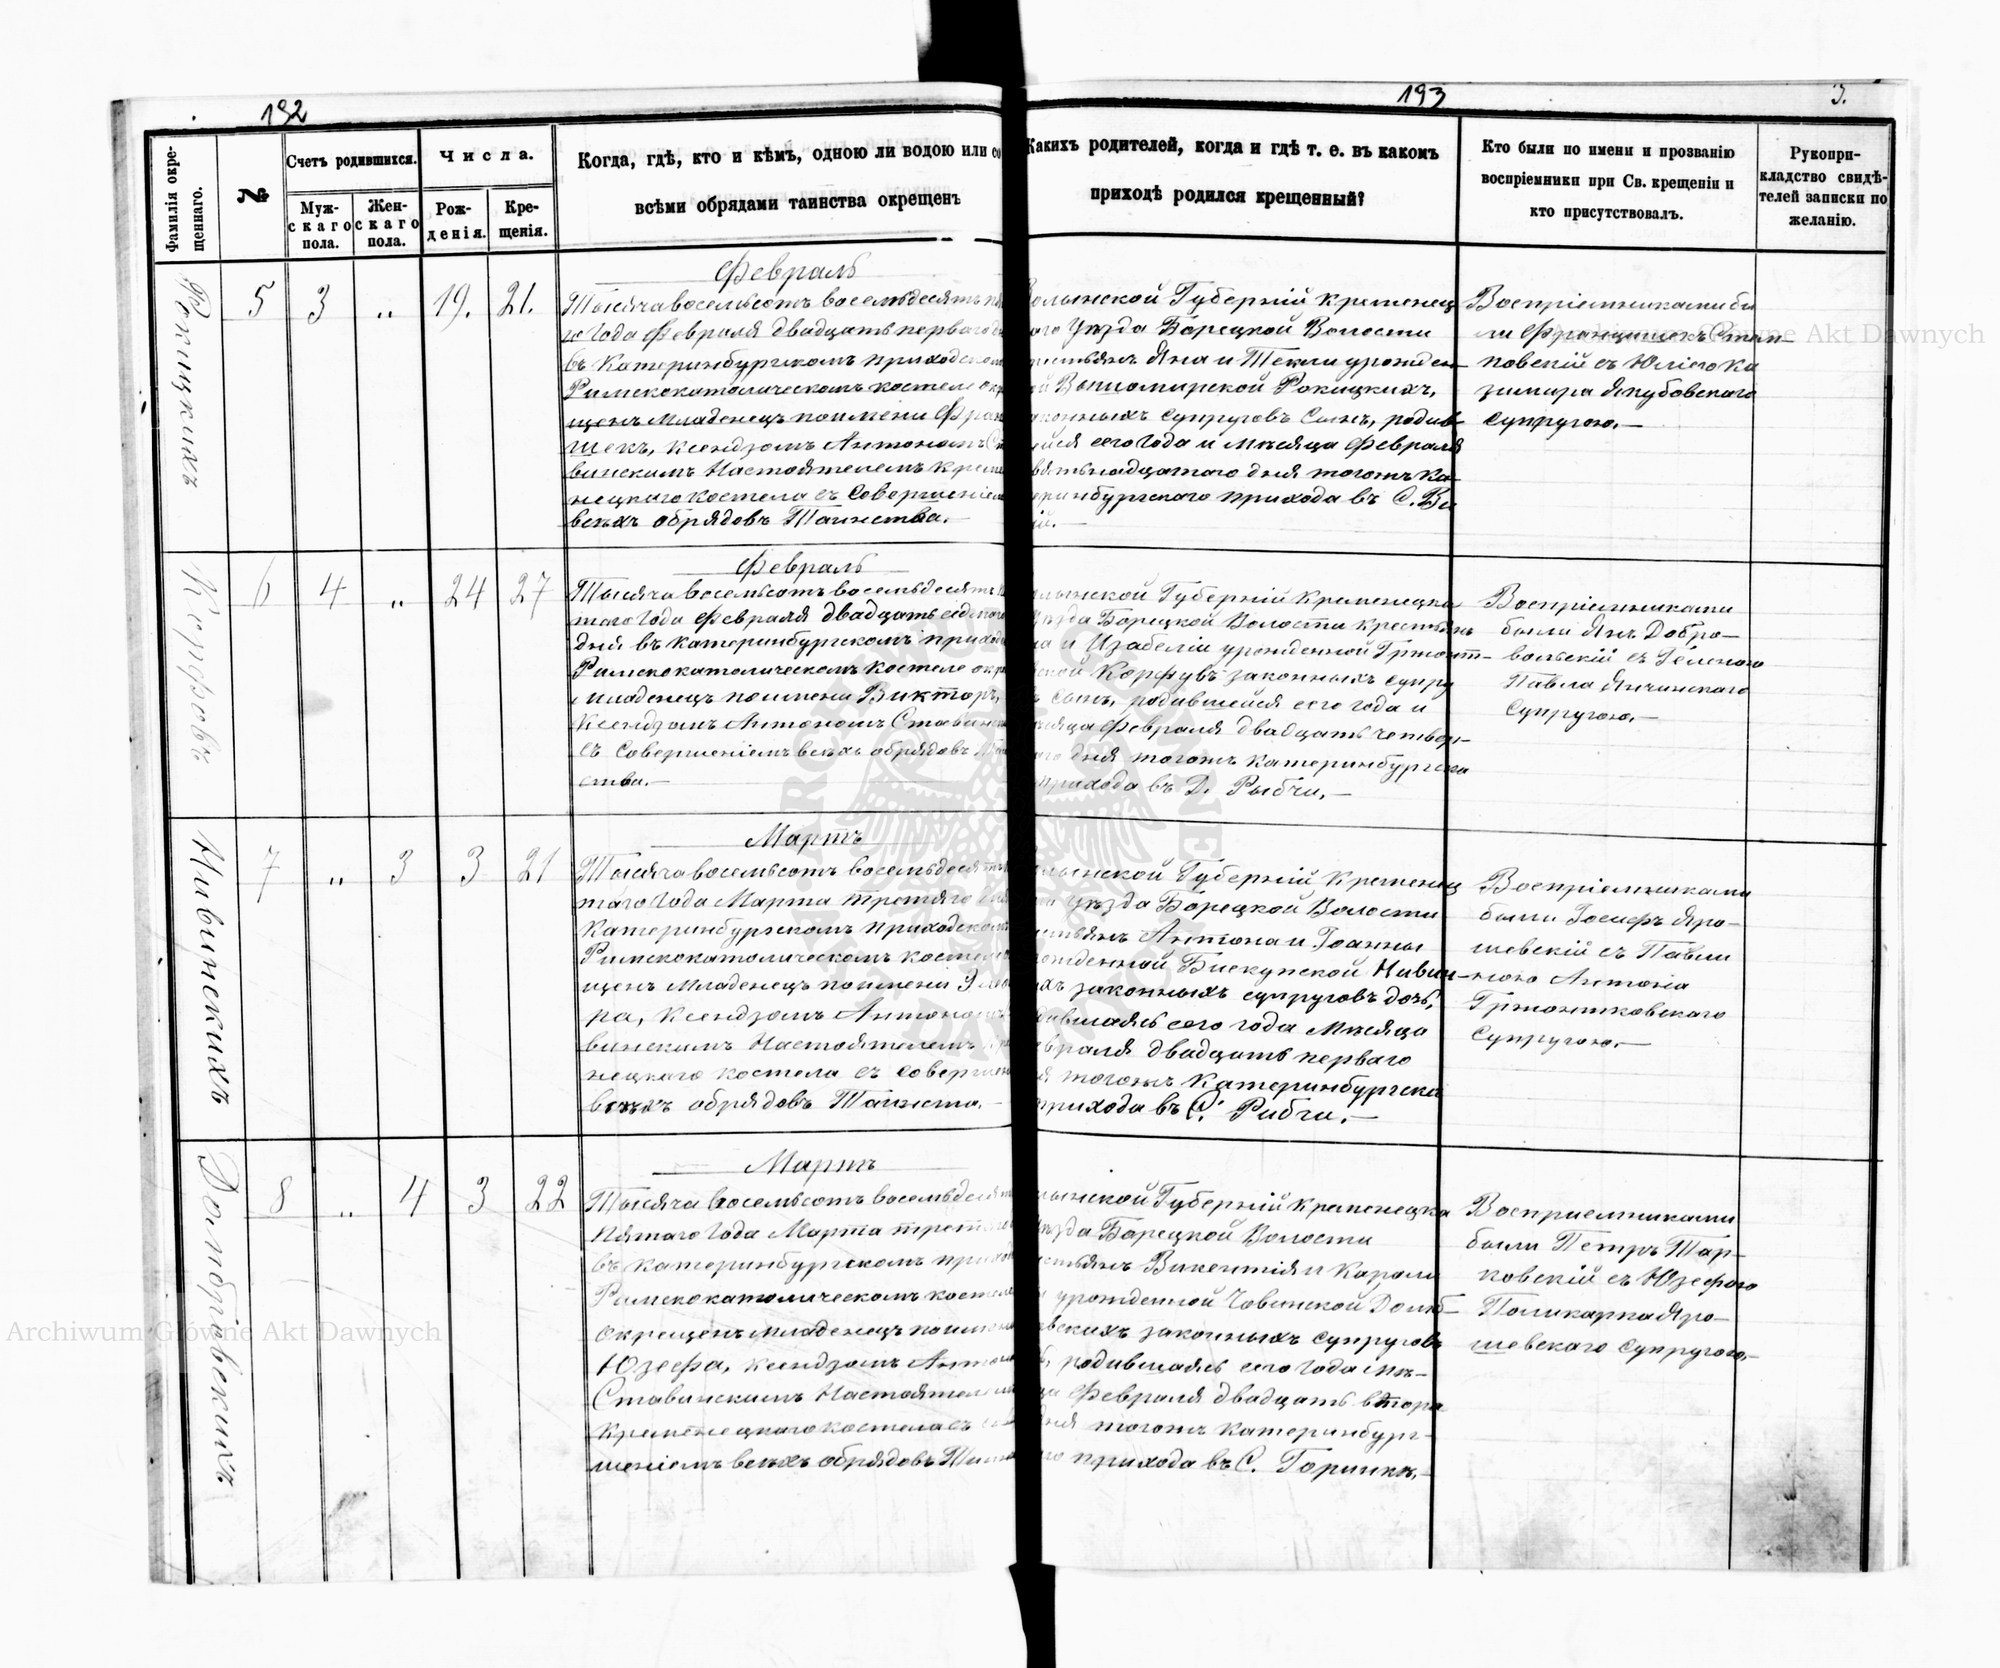 192
193
3.
Фамилія окре-
щеннаго.
№
Счетъ родившихся.
Муж-
скаго
пола.
Жен-
скаго
пола.
Числа.
Рож-
денія.
Кре-
щенія.
Когда, гдѣ, кто и кѣмъ, одною ли водою или со
всѣми обрядами таинства окрещенъ
Какихъ родителей, когда и гдѣ т. е. въ какомъ
приходѣ родился крещенный?
Кто были по имени и прозванію
воспріемники при Св. крещеніи и
кто присутствовалъ.
Рукопри-
кладство свидѣ-
телей записки по
желанію.
Рокицкихъ
5 3 „ 19. 21.
Февраль
Тысяча восемьсотъ восемьдесятъ
го года Февраля двадцать перваго
въ Катеринбургскомъ приходском
Римскокатолическомъ костеле окр
щенъ младенецъ поимени Фран
шекъ, ксендзомъ Антономъ Ст
винскимъ Настоятелемъ Креме
нецкаго костела съ совершеніем
всѣхъ обрядовъ Таинства.—
олынской Губерній Кременец
аго уѣзда Борецкой Волости
рестьянъ Яна и Текли урожден—
ой Рокицкихъ,
аконныхъ супруговъ сынъ, родив
ійся сего года и мѣсяца Февраля
вятьнадцатаго дня тогожъ Ка—
еринбургскаго прихода въ С. Ве
ій.—
Воспріемниками бы
ли Францишекъ Стан—
ковскій съ Юліею Ка
зимира Якубовскаго
супругою.—
Корфовъ
6 4 „ 24 27
Февраль
Тысяча восемьсотъ восемьдесятъ
таго года Февраля двадцать седьмого
дня въ Катеринбургскомъ приход
Римскокатолическомъ костеле окр
младенецъ поимени Викторъ,
ксендзомъ Антономъ Ставин
съ совершеніемъ всѣхъ обрядовъ Таин
ства.—
лынской Губерній Кременецка
уѣзда Борецкой Волости крестьян
на и Изабеліи урожденной
ской Корфувъ законныхъ супру
ъ сынъ, родившейся сего года и
мѣсяца Февраля двадцать четвер—
аго дня тогожъ Катеринбургска
прихода въ Д. Рыбчи.—
Воспріемниками
были Янъ Добро—
вольскій съ Геленою
Павла Янчинскаго
супругою.—
Нивинскихъ
7 „ 3 3 21
Мартъ
Тысяча восемьсотъ восемьдесятъ
таго года Марта третяго дня
Катеринбургскомъ приходском
Римскокатолическомъ костеле
щенъ младенецъ поимени
ра, ксендзомъ Антоном
винскимъ Настоятелемъ Кре
нецкаго костела съ совершен
всѣхъ обрядовъ Таинства.—
лынской Губерній Кременец
уѣзда Борецкой Волости
стьянъ Антона и Іоанны
рожденной Бискупской Нивин—
ихъ законныхъ супруговъ дочь,
дившаясь сего года мѣсяца
евраля двадцать перваго
я тогожъ Катеринбургска
прихода въ С. Рибчи.—
Воспріемниками
были Іосифъ Яро—
шевскій съ Павли
ною Антонія
супругою.—
Домбровскихъ
8 „ 4 3 22
Мартъ
Тысяча восемьсотъ восемьдесят
пятаго года Марта третяго
въ Катеринбургскомъ приход
Римскокатолическомъ костеле
окрещенъ младенецъ поимени
Юзефа, ксендзомъ Антоно
Ставинскимъ Настоятелем
Кременецкаго костела съ сов
шеніемъ всѣхъ обрядовъ Таин
лынской Губерній Кременецка
уѣзда Борецкой Волости
стьянъ Викентія и Кароли
урожденной Човинской Домб—
овскихъ законныхъ супругов
ь, родившаясь сего года мѣ—
ца Февраля двадцать втора
дня тогожъ Катеринбург—
го прихода въ С. Горинкѣ.—
Восприемниками
были Петръ Тар—
ковскій съ Юзефою
Поликарпа Яро—
шевскаго супругою.—
Archiwum Główne Akt Dawnych
Archiwum Główne Akt Dawnych